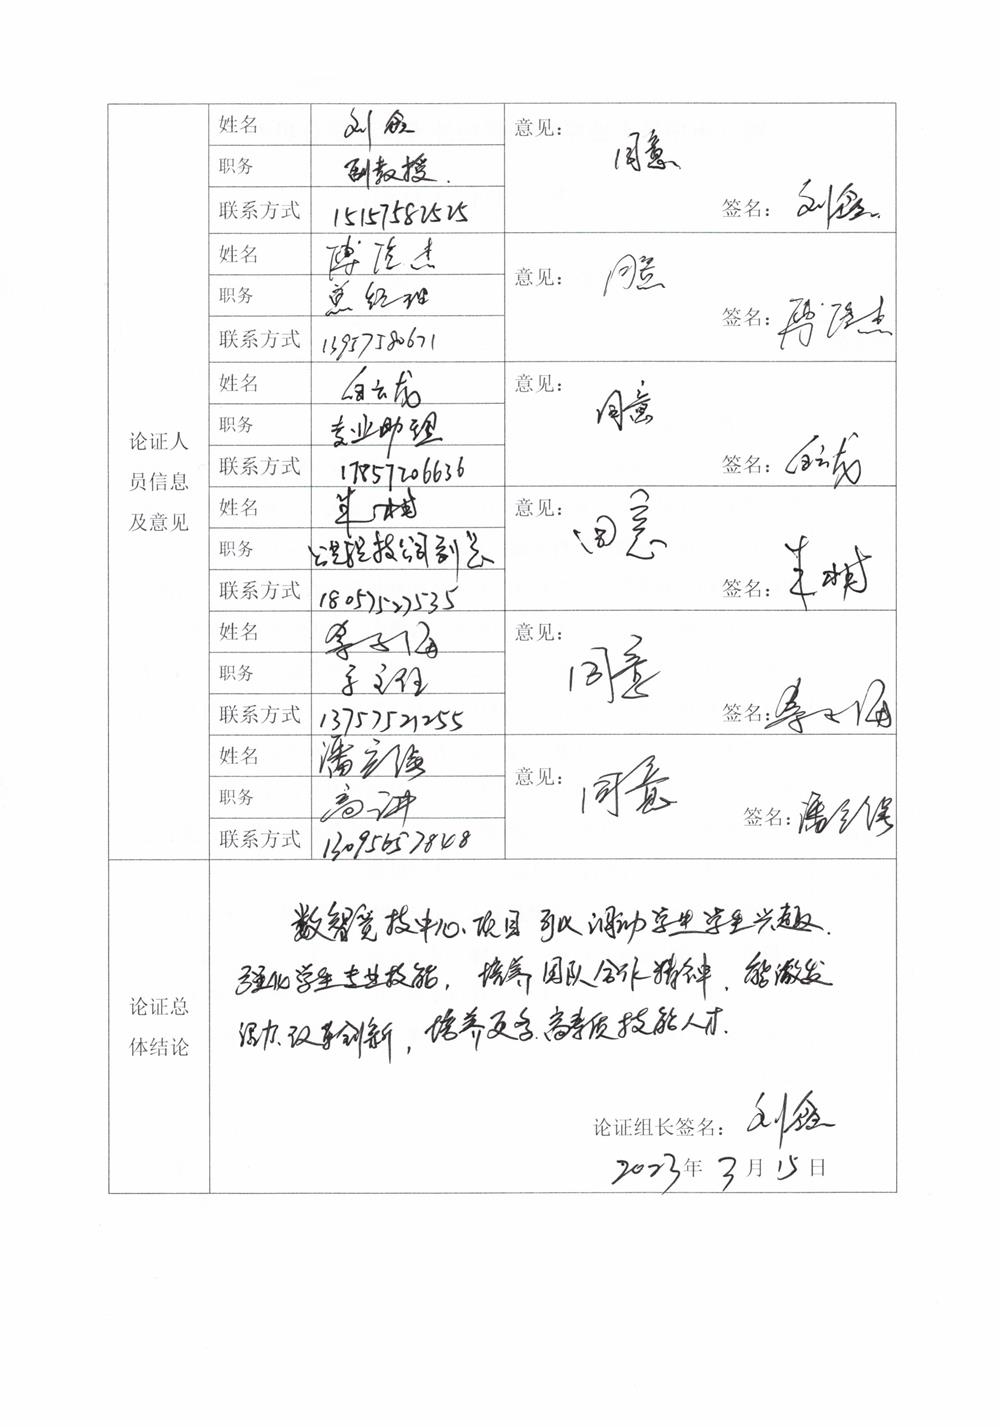 姓名 刘鑫 意见：
同意
职务 副教授.
联系方式 15157582525 签名： 刘鑫.
姓名 傅陆杰
意见： 同意
职务 总经理
签名： 傅陆杰
联系方式 13957580671
姓名 白云龙 意见：
同意
职务 专业助理
联系方式 17857206636 签名： 白云龙
姓名 意见： 同意
职务 技公司副总
签名：
联系方式 18057527535
姓名 李子海 意见：
同意
职务 系主任
联系方式 13757521255 签名： 李子海
姓名 潘
意见： 同意
职务 高讲
签名： 潘
联系方式 13095657848
论证人
员信息
及意见
数智竞技中心项目可以调动学生学生兴趣.
强化学生专业技能, 培养团队合作精神, 能激发
改革创新, 培养更多高素质技能人才.
论证总
体结论
论证组长签名： 刘鑫
2023年 3月 15日